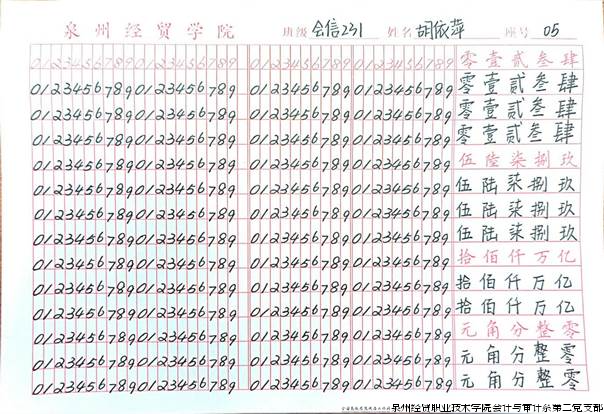 泉州经贸学院 班级 会信231 姓名 胡依萍 座号 05
0123456789 0123456789 0123456789 0123456789 零壹贰叁肆
0123456789 0123456789 0123456789 0123456789 零壹贰叁肆
0123456789 0123456789 0123456789 0123456789 零壹贰叁肆
0123456789 0123456789 0123456789 0123456789 零壹贰叁肆
0123456789 0123456789 0123456789 0123456789 伍陆柒捌玖
0123456789 0123456789 0123456789 0123456789 伍陆柒捌玖
0123456789 0123456789 0123456789 0123456789 伍陆柒捌玖
0123456789 0123456789 0123456789 0123456789 伍陆柒捌玖
0123456789 0123456789 0123456789 0123456789 拾佰仟万亿
0123456789 0123456789 0123456789 0123456789 拾佰仟万亿
0123456789 0123456789 0123456789 0123456789 拾佰仟万亿
0123456789 0123456789 0123456789 0123456789 元角分整零
0123456789 0123456789 0123456789 0123456789 元角分整零
0123456789 0123456789 0123456789 0123456789 元角分整零
泉州经贸职业技术学院会计与审计系第二党支部